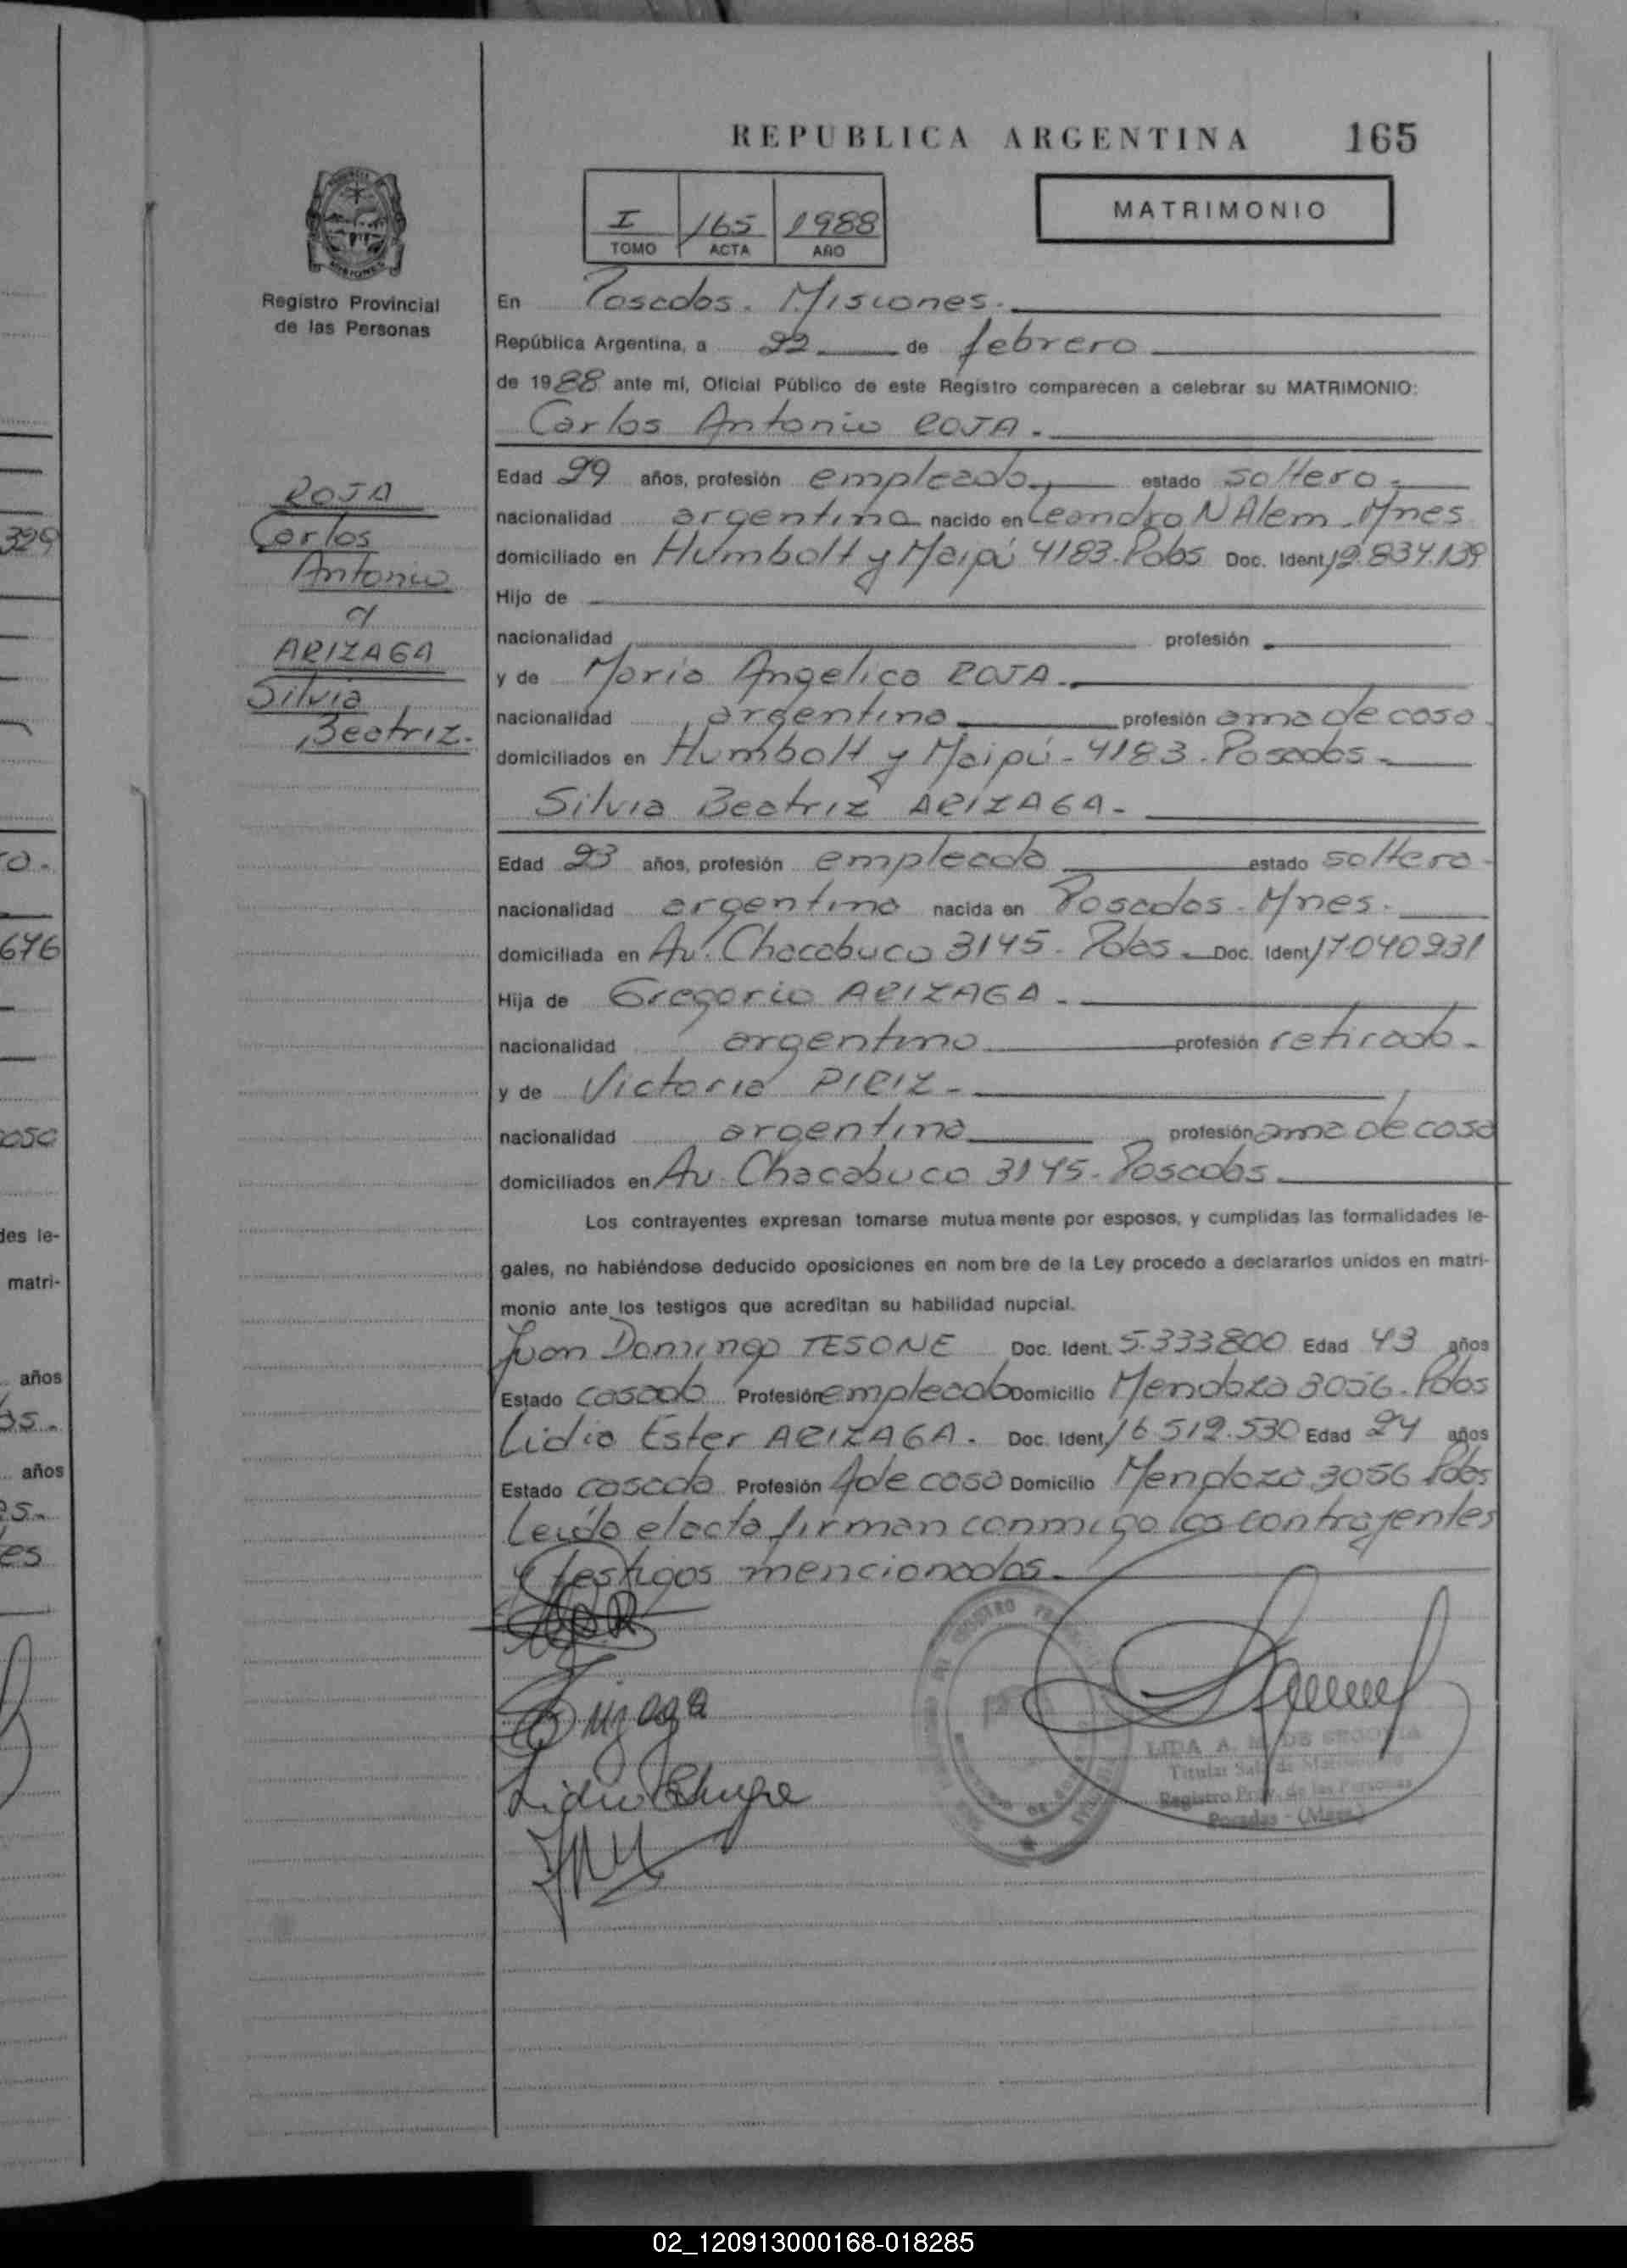 REPUBLICA ARGENTINA 165
MATRIMONIO
I 165 1988
TOMO ACTA AÑO
Registro Provincial
de las Personas
ROJA
Carlos
Antonio
c/
ARIZAGA
Silvia
Beatriz.-
En Posadas - Misiones.
República Argentina, a 22 de febrero
de 1988 ante mí, Oficial Público de este Registro comparecen a celebrar su MATRIMONIO:
Carlos Antonio ROJA.
Edad 29 años, profesión empleado estado soltero.
nacionalidad argentina nacido en Leandro N Alem - Mnes
domiciliado en Humbolt y Maipú 4183. Pdas Doc. Ident. 12.834.139
Hijo de
nacionalidad profesión
y de María Angelica ROJA.
nacionalidad argentina profesión ama de casa.
domiciliados en Humbolt y Maipú - 4183 - Posadas -
Silvia Beatriz ARIZAGA -
Edad 23 años, profesión empleada estado soltera -
nacionalidad argentina nacida en Posadas - Mnes.
domiciliada en Av. Chacabuco 3145 - Pdas. Doc. Ident 17.040931
Hija de Gregorio ARIZAGA -
nacionalidad argentino profesión retirado -
y de Victoria PIRIZ -
nacionalidad argentina profesión ama de casa
domiciliados en Av. Chacabuco 3145 - Posadas
Los contrayentes expresan tomarse mutua mente por esposos, y cumplidas las formalidades le-
gales, no habiéndose deducido oposiciones en nom bre de la Ley procedo a declararlos unidos en matri-
monio ante los testigos que acreditan su habilidad nupcial.
Juan Domingo TESONE Doc. Ident. 5.333800 Edad 43 años
Estado casado Profesión empleado Domicilio Mendoza 3056. Pdas
Lidia Ester ARIZAGA. Doc. Ident. 16.512.530 Edad 24 años
Estado casada Profesión A de casa Domicilio Mendoza 3056 Pdas
Leída el acta firman conmigo los contrayentes
y testigos mencionados.
LIDA A. DE SEGOVIA
Titular Sala de Matrimonio
Registro Prov. de las Personas
Posadas - (Mnes.)
329
o.
676
casa
des le-
matri-
años
as.
años
es
02_120913000168-018285